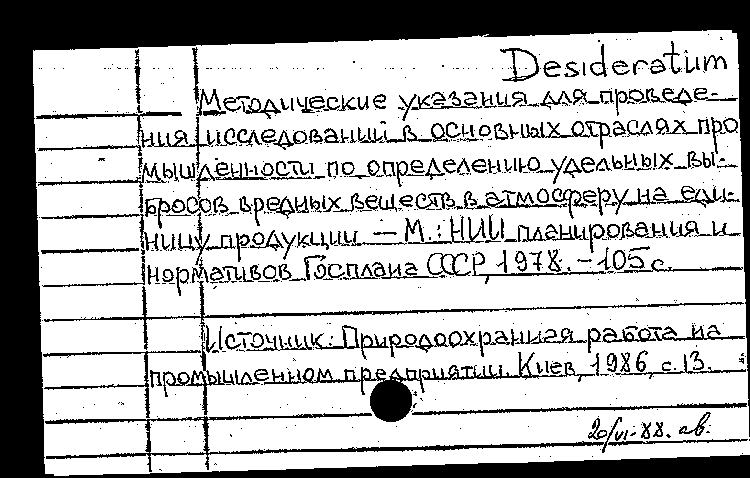 Desideratum
Методические указания для проведе-
ния исследований в основных отраслях про
мышленности по определению удельных вы-
бросов вредных веществ в атмосферу на еди-
ницу продукции — М.: НИИ планирования и
нормативов Госплана СССР, 1978. – 105 с.
Источник: Природоохранная работа на
промышленном предприятии. Киев, 1986, с. 13.
20/VI-88. ав.